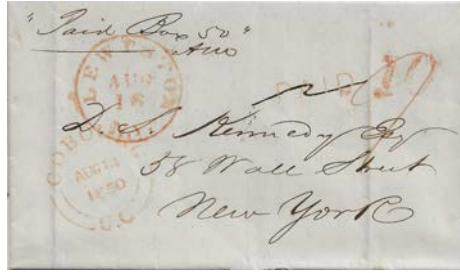 "Paid Box 50"
LEWISTON
AUG
18
N.Y.
PAID
10
D. S. Kennedy Esq
58 Wall Street
New York
COBOURG
AUG 14
1850
U.C.